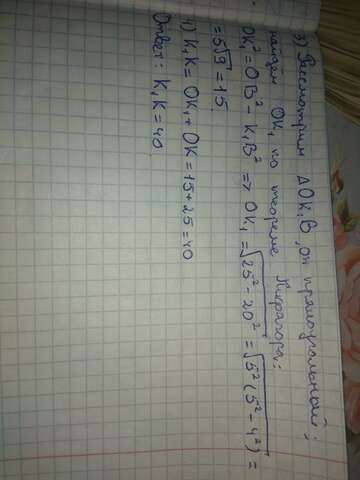 3) Рассмотрим ΔOK₁B, он прямоугольный;
найдём OK₁ по теореме Пифагора:
OK₁² = OB² - K₁B² => OK₁ = √(25² - 20²) = √(5²(5² - 4²)) =
= 5√9 = 15.
4) K₁K = OK₁ + OK = 15 + 25 = 40
Ответ: K₁K = 40